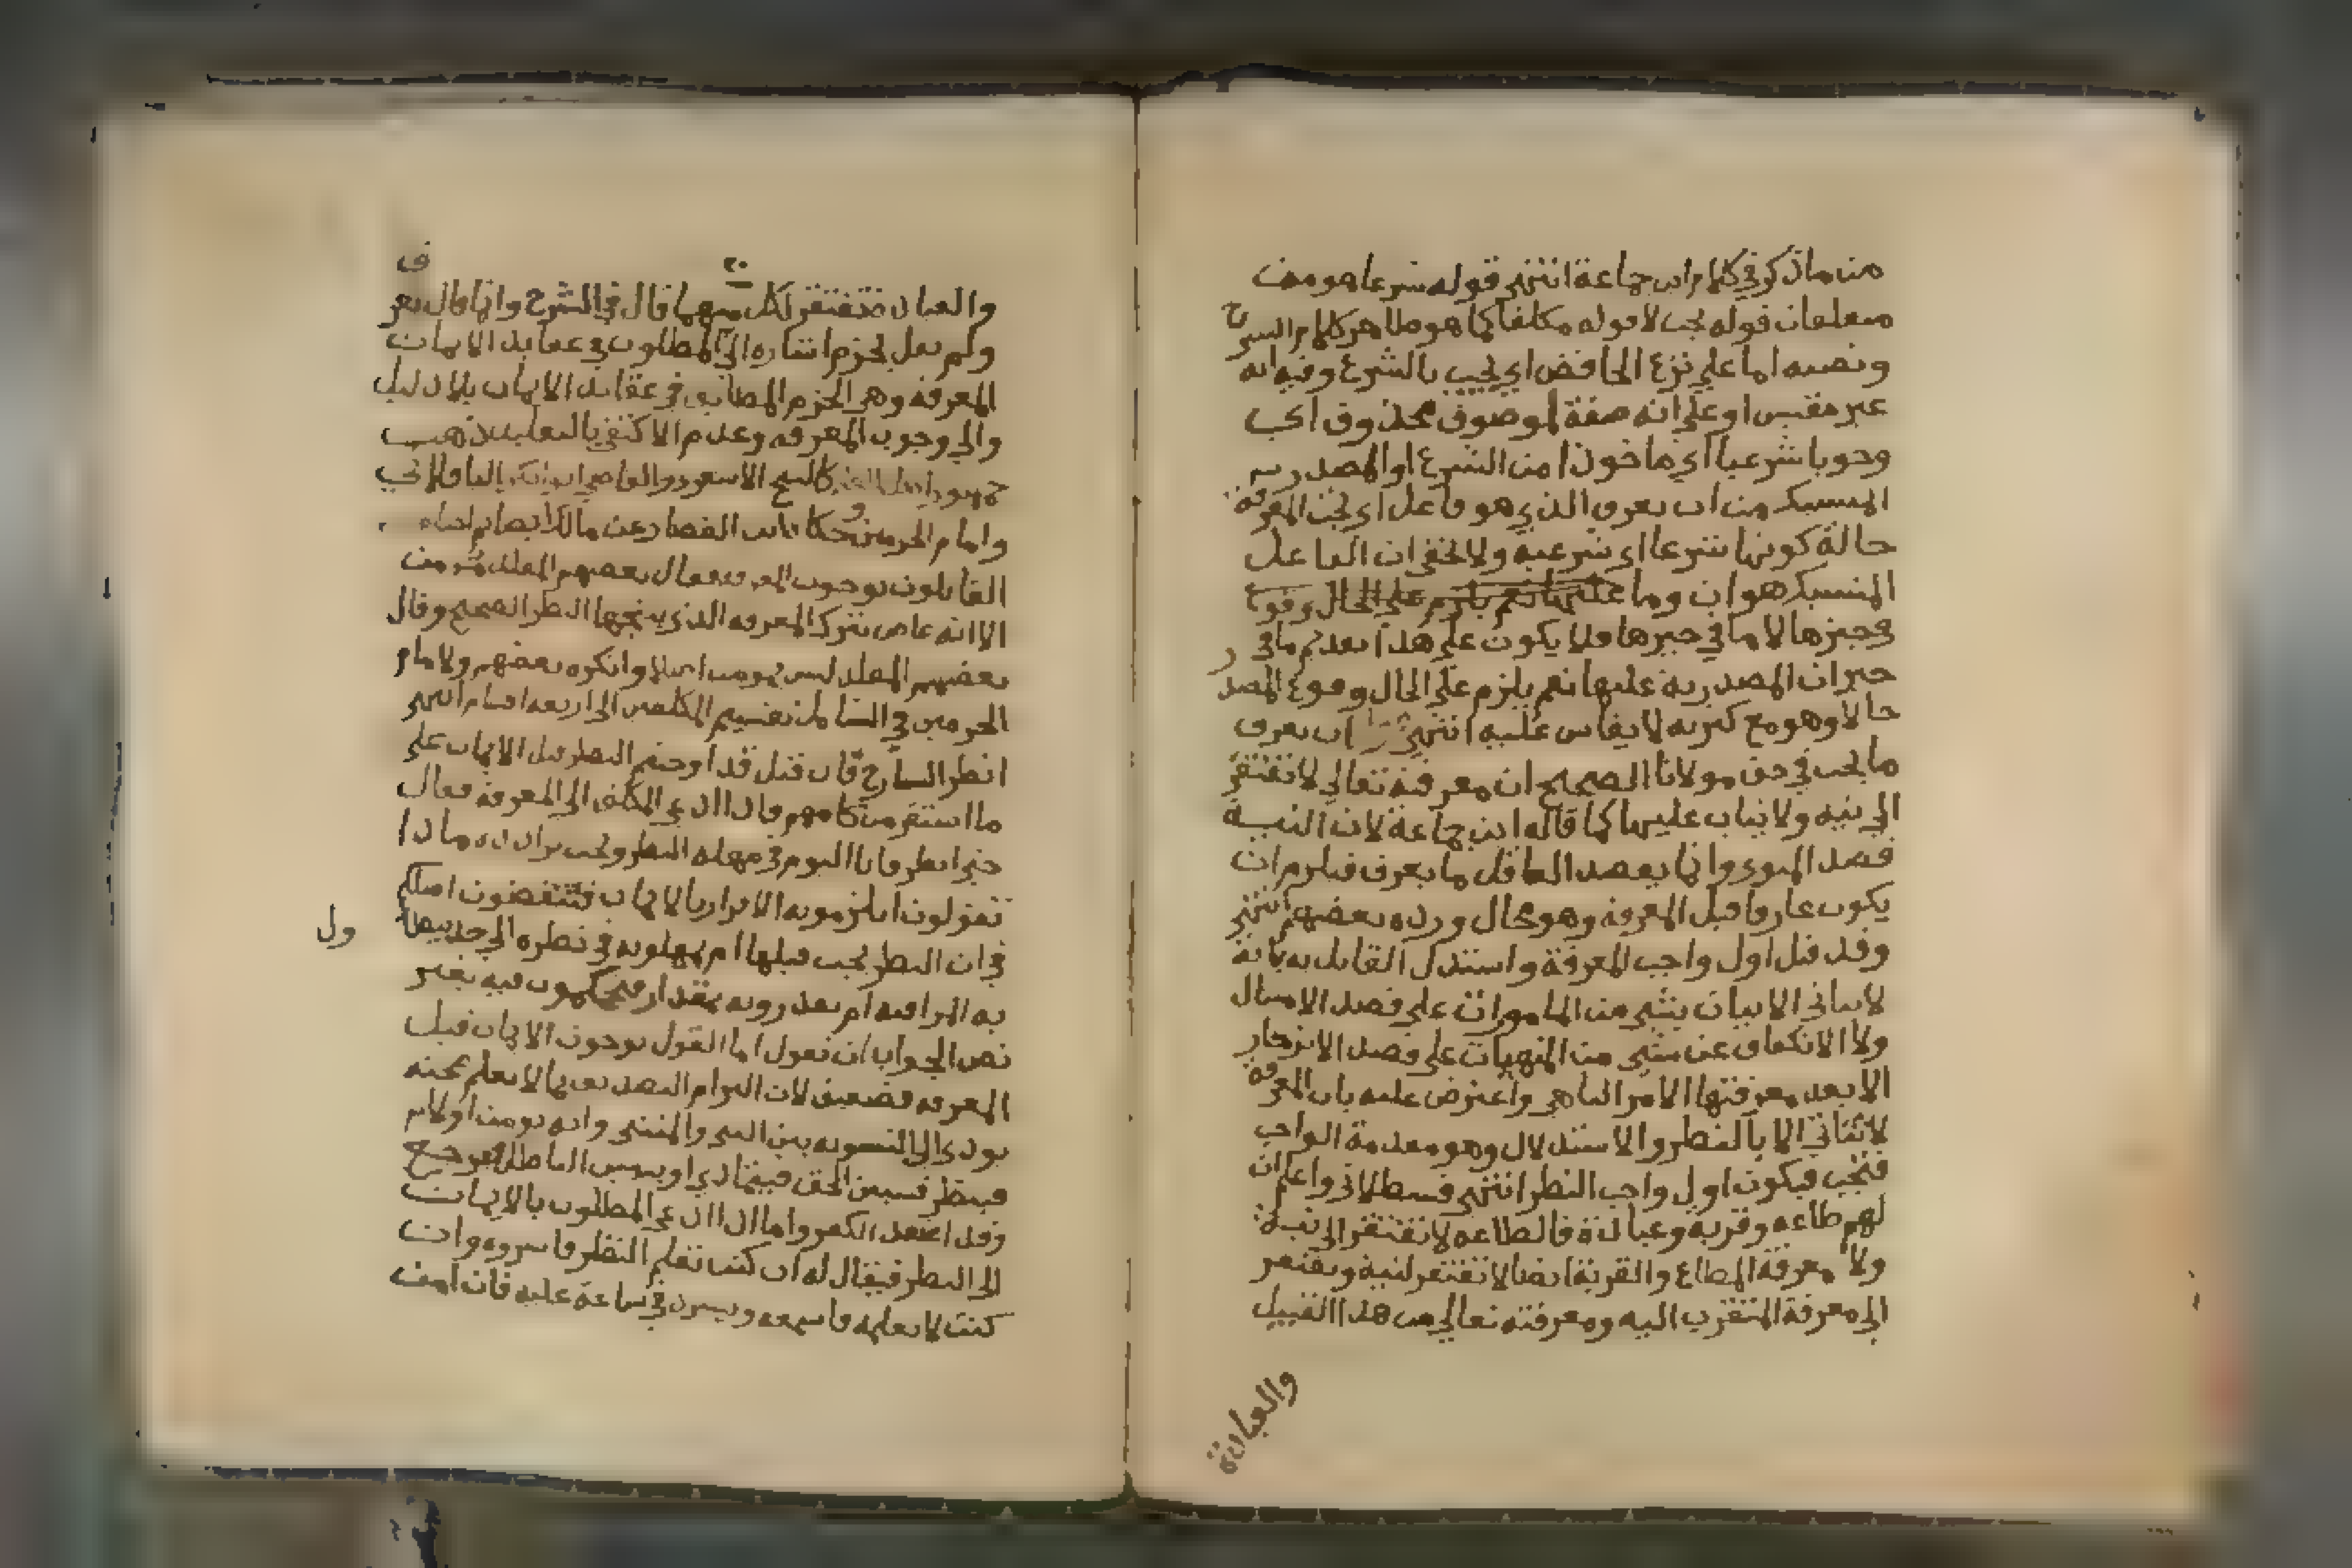 من ماذكر في كلام ابن جماعة انتهى قوله شرعا هو من
متعلقات قوله يجب لا قوله مكلف كما هو ظاهر كلام الشرح
ونصبه اما على نزع الخافض اي يجب بالشرع وفيه انه
غير مقيس او على انه صفة لموصوف محذوف اي يجب
وجوبا شرعيا اي ماخوذا من الشرع او المصدر
المنسبك من ان يعرف الذي هو فاعل اي تجب المعرفة
حالة كونها شرعا اي شرعية ولا يخفى ان الفاعل
المنسبك هو ان وما على الحال وقوع
في حيزها لا ما في حيزها فلا يكون على هذا بعد ما في
حيز ان المصدرية عليها نعم يلزم على الحال وقوع المصدر
حالا وهو مع كثرته لا يقاس عليه انتهى ان يعرف
ما يجب في حق مولانا الصحيح ان معرفته تعالى لا تفتقر
الى نية ولا يثاب عليها كما قاله ابن جماعة لان النية
قصد المنوي وانما يقصد العاقل ما يعرف فيلزم ان
يكون عارفا قبل المعرفة وهو محال ورده بعضهم انتهى
وقد قيل اول واجب المعرفة واستدل القايل به بانه
لا يتاتى الاتيان بشي من المامورات على قصد الامتثال
ولا الانكفاف عن شي من المنهيات على قصد الانزجار
الا بعد معرفتها الامر الناهي واعترض عليه بان المعرفة
لا تتاتى الا بالنظر والاستدلال وهو مقدمة الواجب
فتجب فيكون اول واجب النظر انتهى قسطلاني واعلم ان
لهم طاعة وقربة وعبادة فالطاعة لا تفتقر الى نية
ولا معرفة المطاع والقربة ايضا لا تفتقر لنية وتفتقر
الى معرفة المتقرب اليه ومعرفته تعالى من هذا القبيل
والعبادة
والعبادة تفتقر لكل منهما قال في الشرح وانما قال يعرف
ولم يقل يجزم اشارة الى المطلوب في عقايد الايمان
المعرفة وهي الجزم المطابق في عقايد الايمان بلا دليل
والى وجوب المعرفة وعدم الاكتفى بالتقليد ذهب
جمهور اهل كالشيخ الاشعري والقاضي ابي بكر الباقلاني
وامام الحرمين وحكاه ابن القصار عن مالك ايضا ثم اختلف
القايلون بوجوب المعرفة فقال بعضهم المقلد مومن
الا انه عاص بترك المعرفة الذي ينتجها النظر الصحيح وقال
بعضهم المقلد ليس بمومن اصلا وانكره بعضهم ولامام
الحرمين في الشامل تقسيم المكلفين الى اربعة اقسام انتهى
انظر الشارح فان قيل قد اوجبتم النظر قبل الايمان على
ما استقر من كلامهم فاذا ادعي المكلف الى المعرفة فقال
حتى انظر فانا اليوم في مهلة النظر وتحت ترداده ماذا
تقولون اتلزمونه الاقرار بالايمان فتنقضون اصلكم
في ان النظر يجب قبلها ام تمهلونه في نظره الى حد يتطاول
به المرا فيه ام تقدرونه بمقدار فتحكمون فيه بغير
نص الجواب ان نقول اما القول بوجوب الايمان قبل
المعرفة فضعيف لان الزام التصديق بما لا تعلم صحته
يودي الى التسوية بين النبي والمتنبي وانه يومن اولا ثم
فينظر فيتبين الحق فيتمادى او يتبين الباطل فيرجع
وقد اعتقد الكفر واما اذا ادعي المطلوب بالايمان
الى النظر فيقال له ان كنت تعلم النظر فاسرده وان
كنت لا تعلمه فاسمعه ويسرد في ساعة عليه فان امن